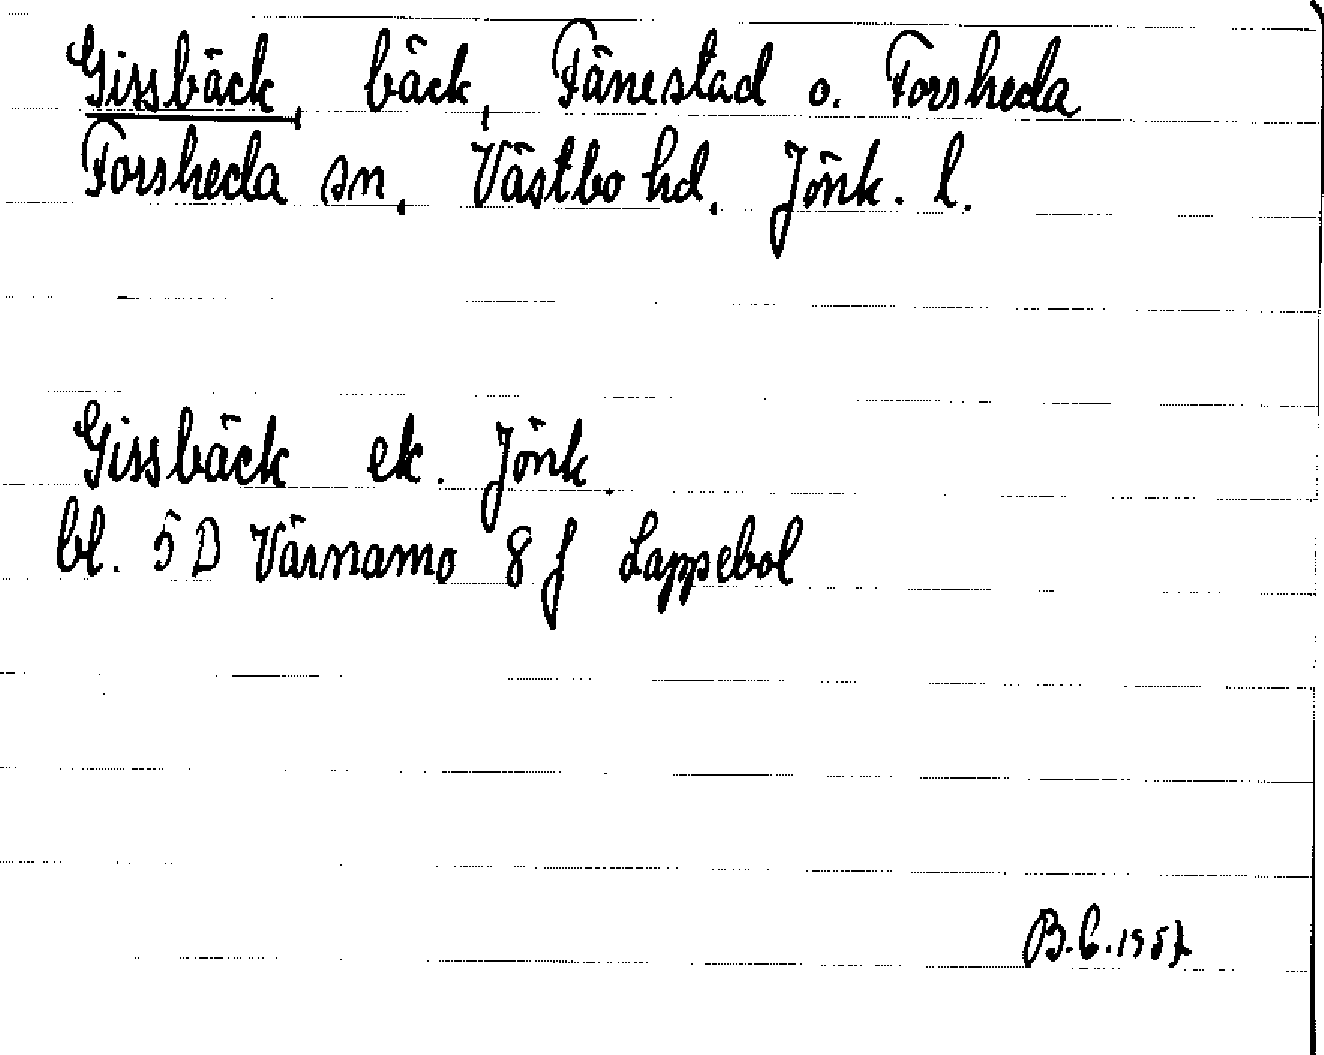 Gissbäck, bäck, Fänestad o. Forsheda
Forsheda sn, Västbo hd, Jönk. l.
Gissbäck ek. Jönk.
bl. 5 D Värnamo 8 f Lappebol
B.C. 1957